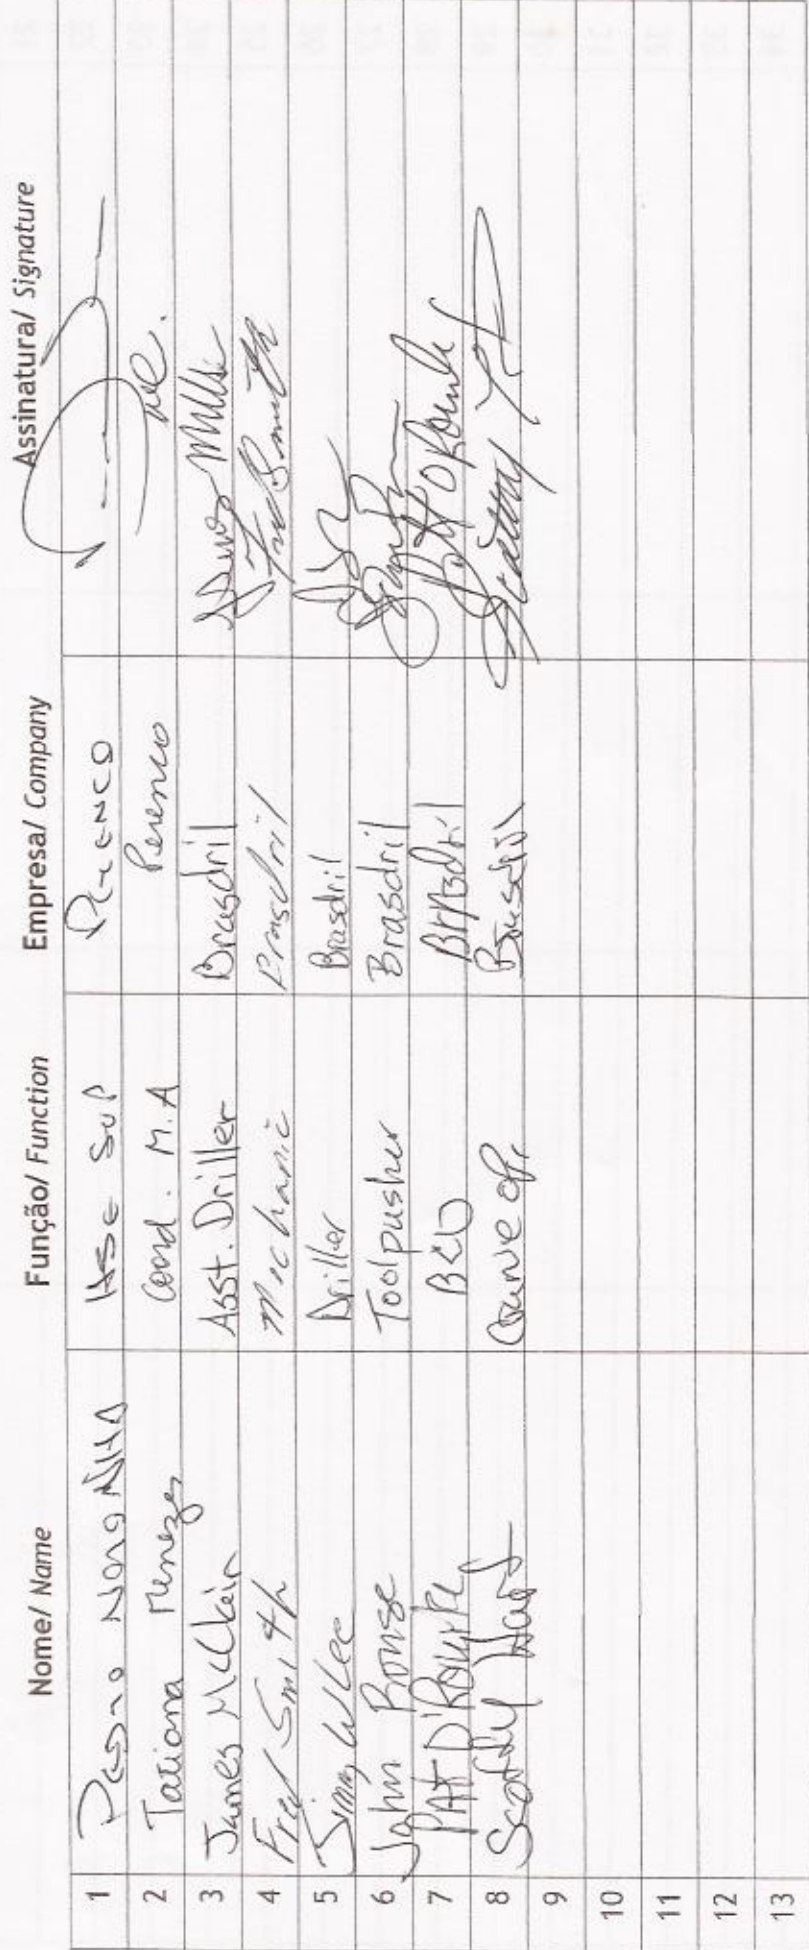 Nome/ Name Função/ Function Empresa/ Company Assinatura/ Signature
1 HSE SUP PERENCO
2 Tatiana Menezes Coord. M.A Perenco
3 James Asst. Driller Brasdril
4 Fred Smith Mechanic Brasdril Fred Smith
5 Jimmy W Lee Driller Brasdril
6 John Rouse Toolpusher Brasdril
7 PAT O'Rourke Brasdril Pat O'Rourke
8 Scotty Brasdril Scotty
9
10
11
12
13